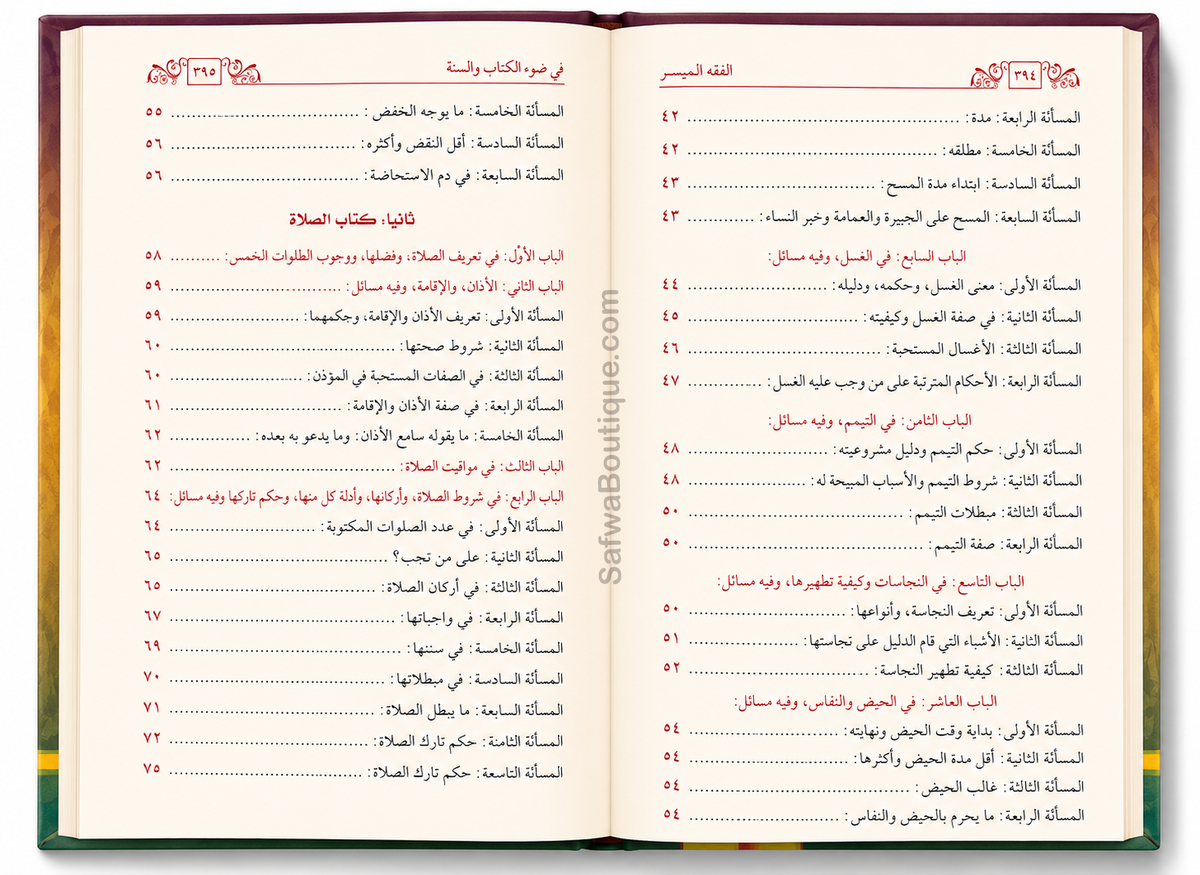 الفقه الميسر
٣٩٤
المسألة الرابعة: مدة: ٤٢
المسألة الخامسة: مطلقه: ٤٢
المسألة السادسة: ابتداء مدة المسح: ٤٣
المسألة السابعة: المسح على الجبيرة والعمامة وخبر النساء: ٤٣
الباب السابع: في الغسل، وفيه مسائل:
المسألة الأولى: معنى الغسل، وحكمه، ودليله: ٤٤
المسألة الثانية: في صفة الغسل وكيفيته: ٤٥
المسألة الثالثة: الأغسال المستحبة: ٤٦
المسألة الرابعة: الأحكام المترتبة على من وجب عليه الغسل: ٤٧
الباب الثامن: في التيمم، وفيه مسائل:
المسألة الأولى: حكم التيمم ودليل مشروعيته: ٤٨
المسألة الثانية: شروط التيمم والأسباب المبيحة له: ٤٨
المسألة الثالثة: مبطلات التيمم: ٥٠
المسألة الرابعة: صفة التيمم: ٥٠
الباب التاسع: في النجاسات وكيفية تطهيرها، وفيه مسائل:
المسألة الأولى: تعريف النجاسة، وأنواعها: ٥٠
المسألة الثانية: الأشباء التي قام الدليل على نجاستها: ٥١
المسألة الثالثة: كيفية تطهير النجاسة: ٥٢
الباب العاشر: في الحيض والنفاس، وفيه مسائل:
المسألة الأولى: بداية وقت الحيض ونهايته: ٥٤
المسألة الثانية: أقل مدة الحيض وأكثرها: ٥٤
المسألة الثالثة: غالب الحيض: ٥٤
المسألة الرابعة: ما يحرم بالحيض والنفاس: ٥٤
في ضوء الكتاب والسنة
٣٩٥
المسألة الخامسة: ما يوجه الخفض: ٥٥
المسألة السادسة: أقل النقض وأكثره: ٥٦
المسألة السابعة: في دم الاستحاضة: ٥٦
ثانيا: كتاب الصلاة
الباب الأول: في تعريف الصلاة، وفضلها، ووجوب الطلوات الخمس: ٥٨
الباب الثاني: الأذان، والإقامة، وفيه مسائل: ٥٩
المسألة الأولى: تعريف الأذان والإقامة، وجكمهما: ٥٩
المسألة الثانية: شروط صحتها: ٦٠
المسألة الثالثة: في الصفات المستحبة في المؤذن: ٦٠
المسألة الرابعة: في صفة الأذان والإقامة: ٦١
المسألة الخامسة: ما يقوله سامع الأذان: وما يدعو به بعده: ٦٢
الباب الثالث: في مواقيت الصلاة: ٦٢
الباب الرابع: في شروط الصلاة، وأركانها، وأدلة كل منها، وحكم تاركها وفيه مسائل: ٦٤
المسألة الأولى: في عدد الصلوات المكتوبة: ٦٤
المسألة الثانية: على من تجب؟ ٦٥
المسألة الثالثة: في أركان الصلاة: ٦٥
المسألة الرابعة: في واجباتها: ٦٧
المسألة الخامسة: في سننها: ٦٩
المسألة السادسة: في مبطلاتها: ٧٠
المسألة السابعة: ما يبطل الصلاة: ٧١
المسألة الثامنة: حكم تارك الصلاة: ٧٢
المسألة التاسعة: حكم تارك الصلاة: ٧٥
SafwaBoutique.com